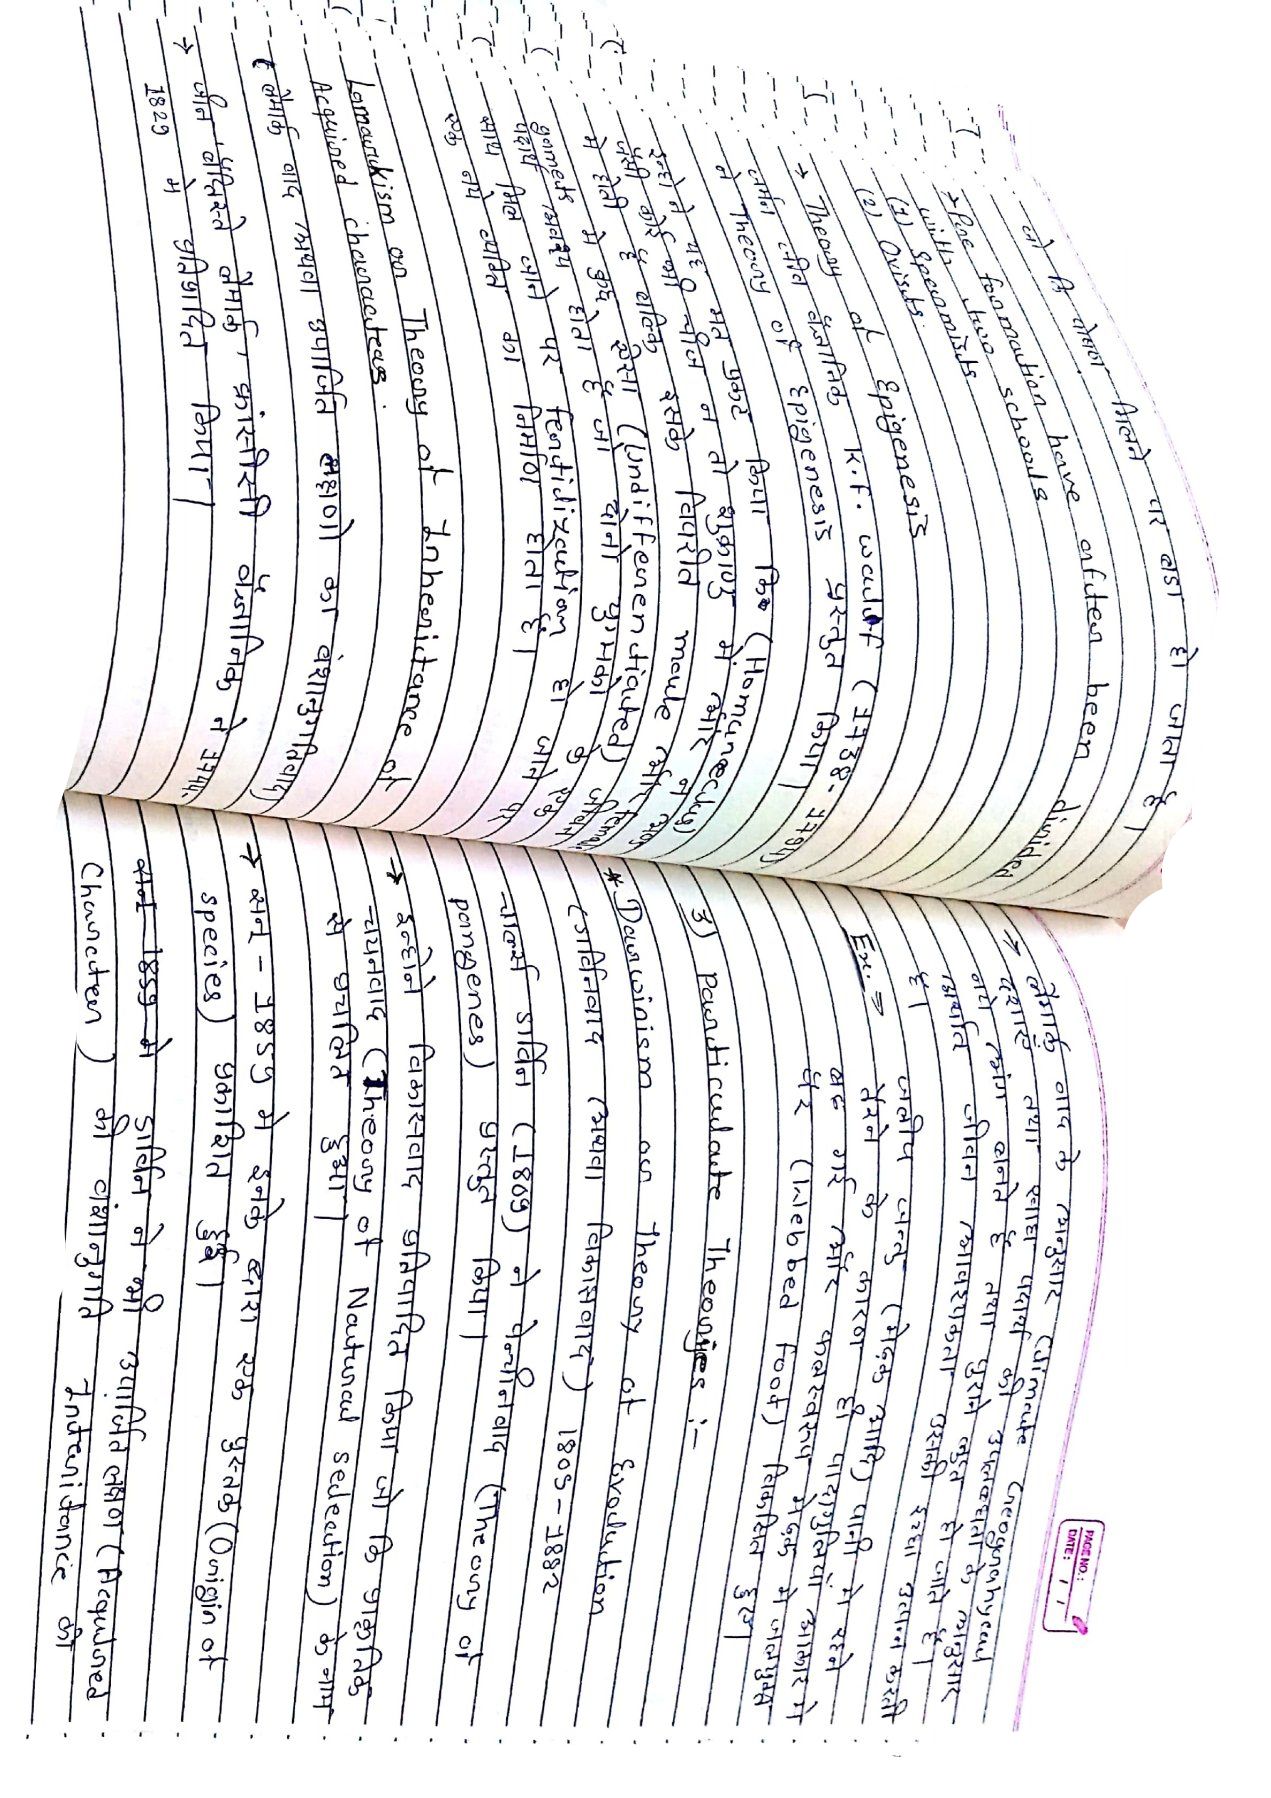 जो कि पोषण मिलने पर बडा हो जाता है।
→ Pre formation have after been divided
with two schools
(1) Spermists
(2) Ovists.
Theory of Epigenesis
→ जर्मन जीव वैज्ञानिक K.F. wolff (1738-1794)
ने Theory of Epigenesis प्रस्तुत किया।
इन्होने यह मत प्रकट किया कि (Homunculus)
जैसी कोई चीज न तो शुक्राणु में और न अंड
मे होती है बल्कि इसके विपरीत male और female
gamets मे कुछ ऐसा (Undifferentiated) जीवित
पदार्थ अवश्य होता है जो दोनो युग्मको के एक
साथ मिल जाने पर fertilization हो जाने पर
एक नये व्यक्ति का निर्माण होता है।
Lamarckism or Theory of Inheritance of
Acquired characters.
( लैमार्क वाद अथवा उपार्जित लक्षणो का वंशानुगतिवाद)
→ जीन बैप्टिस्ते लैमार्क, फ्रांसीसी वैज्ञानिक ने 1744-
1829 मे प्रतिपादित किया।
PAGE NO.:
DATE: / /
→ लैमार्क वाद के अनुसार Climate Geographycal
दशाएं तथा खाद्य पदार्थो की उपलब्धता के अनुसार
नये अंग बनते है तथा पुराने लुप्त हो जाते है।
अर्थात जीवन आवश्यकता उसकी इच्छा उत्पन्न करती
है।
Ex:⇒ जलीय जन्तु (मेढ़क आदि) पानी मे रहने
तैरने के कारण ही पादांगुलियां आकार मे
बढ गई और फलस्वरूप मेंढक मे जलयुक्त
पैर (Webbed Foot) विकसित हुए।
3) Particulate Theories :-
* Darwinism or Theory of Evolution
(डार्विनवाद अथवा विकासवाद) 1809-1882
चार्ल्स डार्विन (1869) ने पेन्जीनवाद (Theory of
pangenes) प्रस्तुत किया।
→ इन्होने विकासवाद प्रतिपादित किया जो कि प्राकृतिक
चयनवाद (Theory of Natural selection) के नाम
से प्रचलित हुआ।
→ सन् - 1859 मे इनके द्वारा एक पुस्तक (Origin of
species) प्रकाशित हुई।
सन् 1859 मे डार्विन ने भी उपार्जित लक्षण (Acquired
Character) की वंशानुगति Interidance की